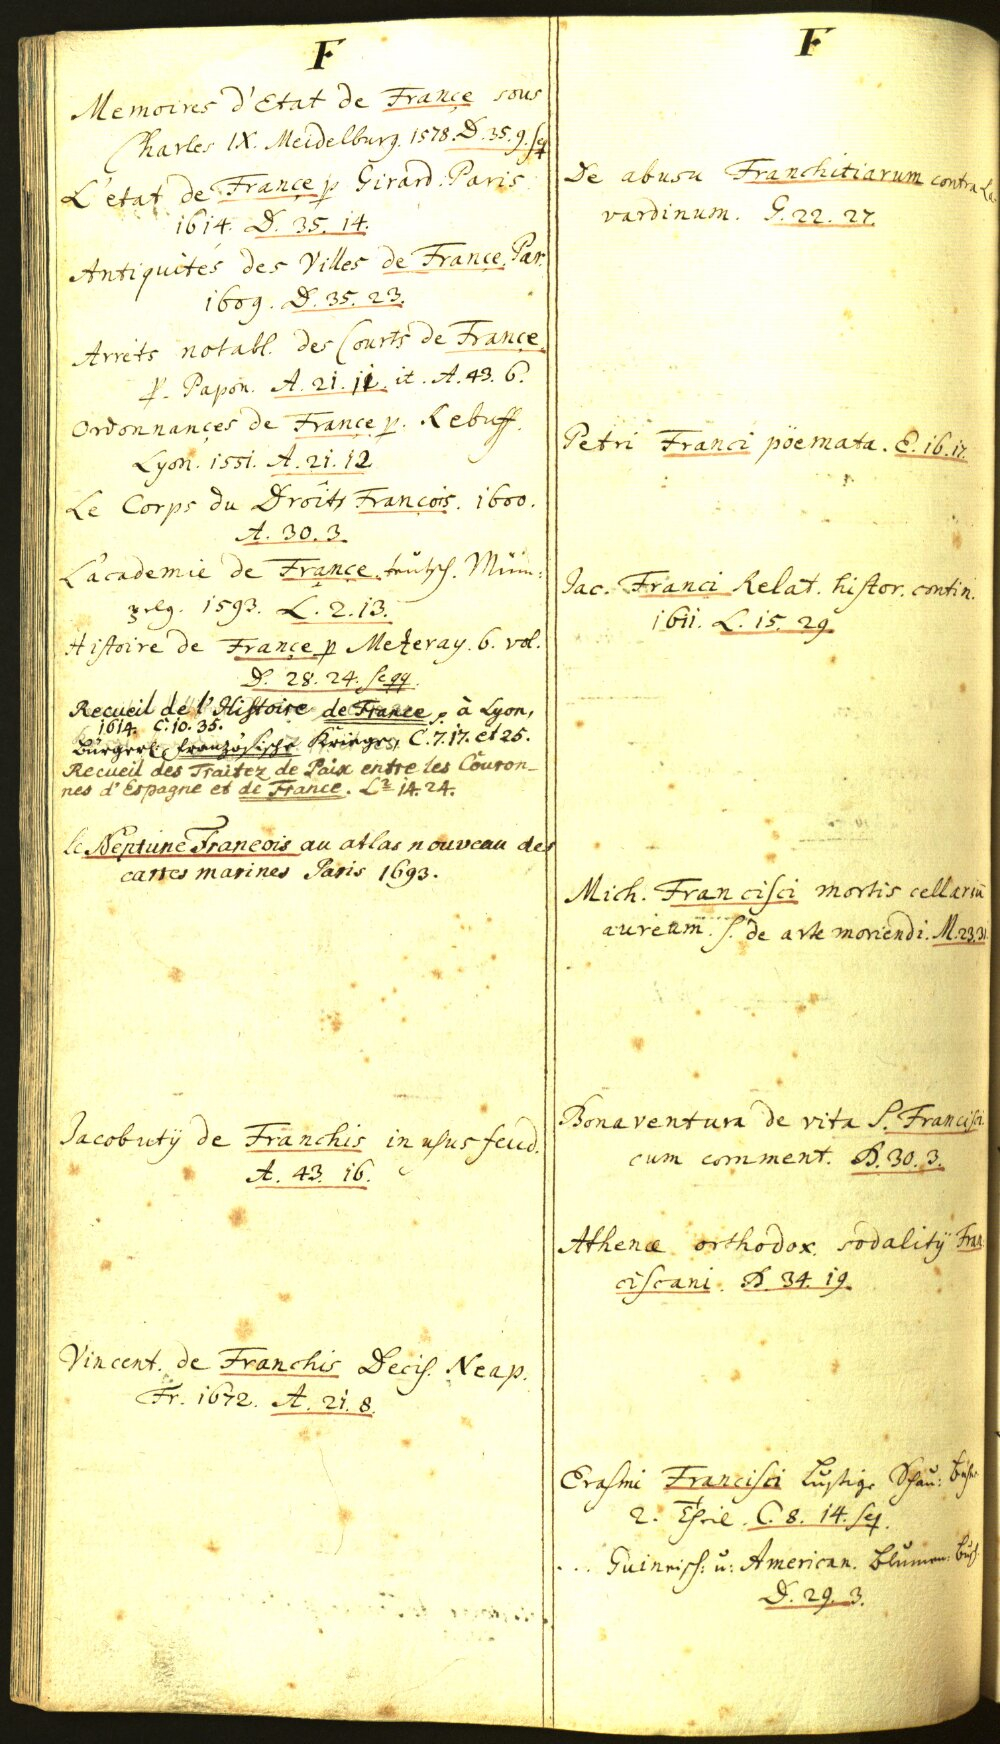 F
Memoires d'Etat de Françe sous
Charles IX. Meidelburg. 1578. D. 35. 9. seq
L'etat de Françe p Girard. Paris
1614. D. 35. 14.
Antiquités des Villes de Françe. Par.
1609. D. 35. 23.
Arrêts notabl. des Courts de Françe
p. Papon. A. 21. 11. it. A. 43. 6.
Ordonnançes de Françe p. Rebuff.
Lyon. 1551. A. 21. 12
Le Corps du Droits François. 1600.
A. 30. 3.
L'academie de Françe. teutsch. Müm:
pelg. 1593. L. 2. 13.
Histoire de Françe p Mezeray. 6. vol.
D. 28. 24. seqq.
Recueil de l'Histoire de France, p à Lyon,
1614. C. 10. 35.
Bürgerl. französische Kriege, C. 7. 17. et 25.
Recueil des Traitez de Paix entre les Couron-
nes d'Espagne et de France. L 14. 24.
le Neptune Francois au atlas nouveau des
cartes marines Paris 1693.
Jacobutÿ de Franchis in usus feud.
A. 43. 16.
Vincent. de Franchis Decis. Neap.
Fr. 1672. A. 21. 8.
F
De abusu Franchitiarum contra La
vardinum. G. 22. 27.
Petri Franci pöemata. E. 16. 17.
Jac. Franci Relat. histor. contin.
1611. L. 15. 29
Mich. Francisci mortis cellariū
aureum. s. de arte moriendi. M. 23. 31.
Bonaventura de vita S. Francisci
cum comment. B. 30. 3.
Athenæ orthodox. sodalitÿ Fran
ciscani. B. 34. 19.
Erasmi Francisci Lustige Schau: büh
2. Theile. C. 8. 14. seq.
... Guineisch: u: American. Blumen: Büsch.
D. 29. 3.